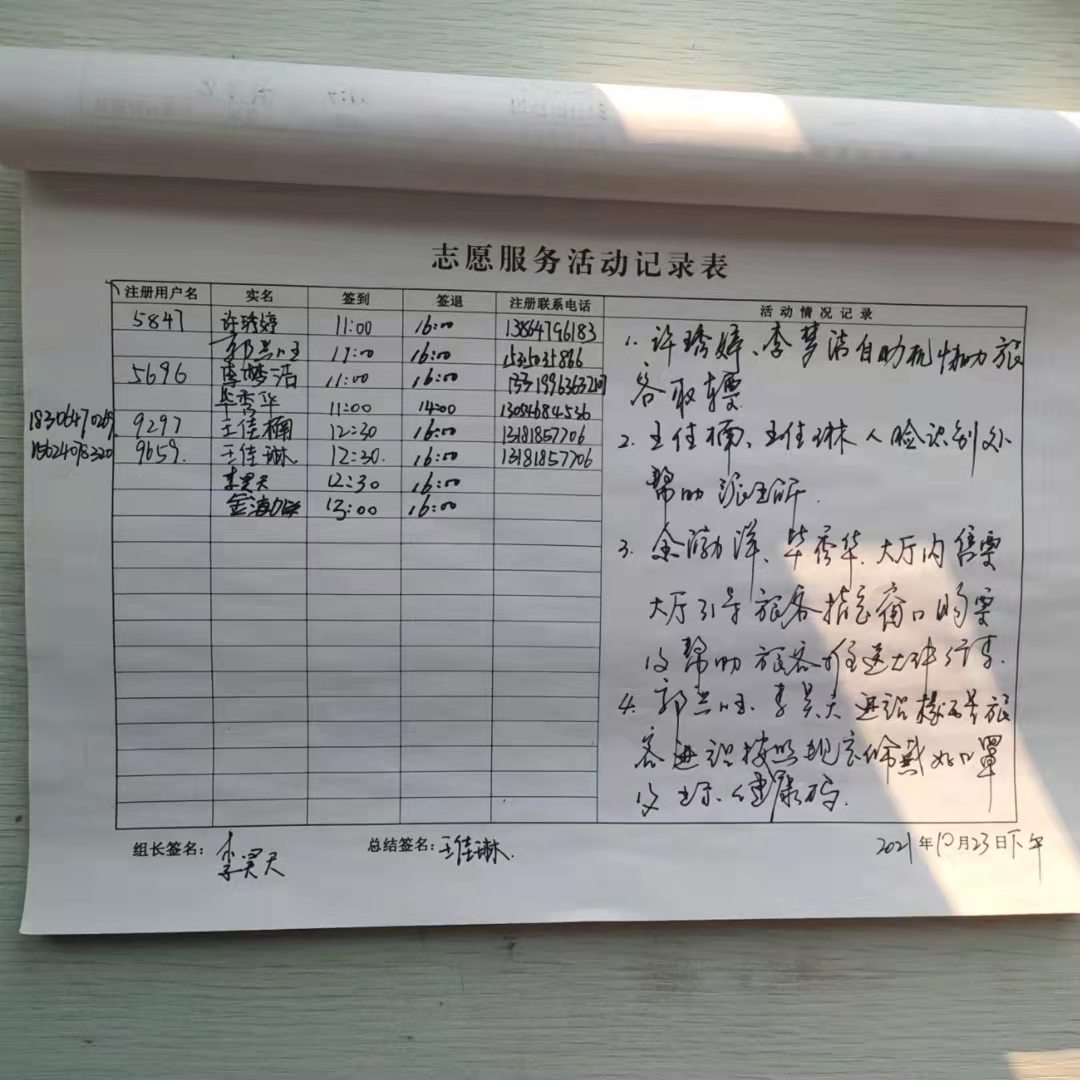 志愿服务活动记录表
注册用户名 实名 签到 签退 注册联系电话 活动情况记录
5847 许琇婷 11:00 16:00 13864796183
11:00 16:00
5696 李梦洁 11:00 16:00
毕秀华 11:00 14:00 13054684536
9297 王佳楠 12:30 16:00 13181857706
9659 王佳琳 12:30 16:00 13181857706
李昊天 12:30 16:00
金渤洋 13:00 16:00
1. 许琇婷、李梦洁自助机协助旅
客取票
2. 王佳楠、王佳琳人脸识别处
帮助
3. 金渤洋、毕秀华.大厅内售票
大厅引导旅客指定窗口购票
及帮助旅客
4. 李昊天进站
客进站按照规定佩戴好口罩
及 健康码.
组长签名: 李昊天
总结签名: 王佳琳.
2021年10月23日下午